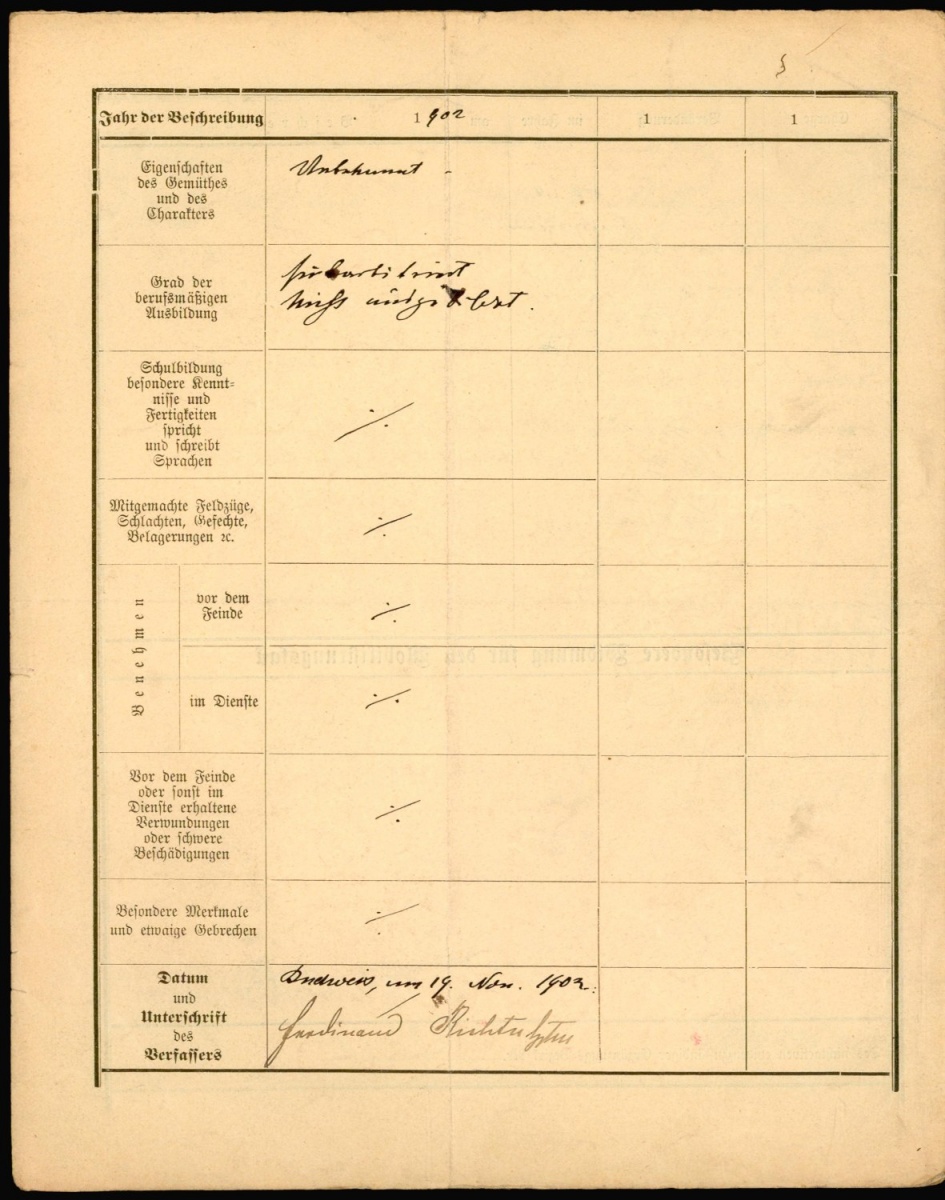 Jahr der Beschreibung 1902 1 1
Eigenschaften
des Gemüthes
und des
Charakters
Unbekannt -
Grad der
berufsmäßigen
Ausbildung
nicht
Schulbildung
besondere Kennt-
nisse und
Fertigkeiten
spricht
und schreibt
Sprachen
./.
Mitgemachte Feldzüge,
Schlachten, Gefechte,
Belagerungen ꝛc.
./.
Benehmen
vor dem
Feinde
./.
im Dienste
./.
Vor dem Feinde
oder sonst im
Dienste erhaltene
Verwundungen
oder schwere
Beschädigungen
./.
Besondere Merkmale
und etwaige Gebrechen
./.
Datum
und
Unterschrift
des
Verfassers
Budweis, am 19. Nov. 1902.
Ferdinand